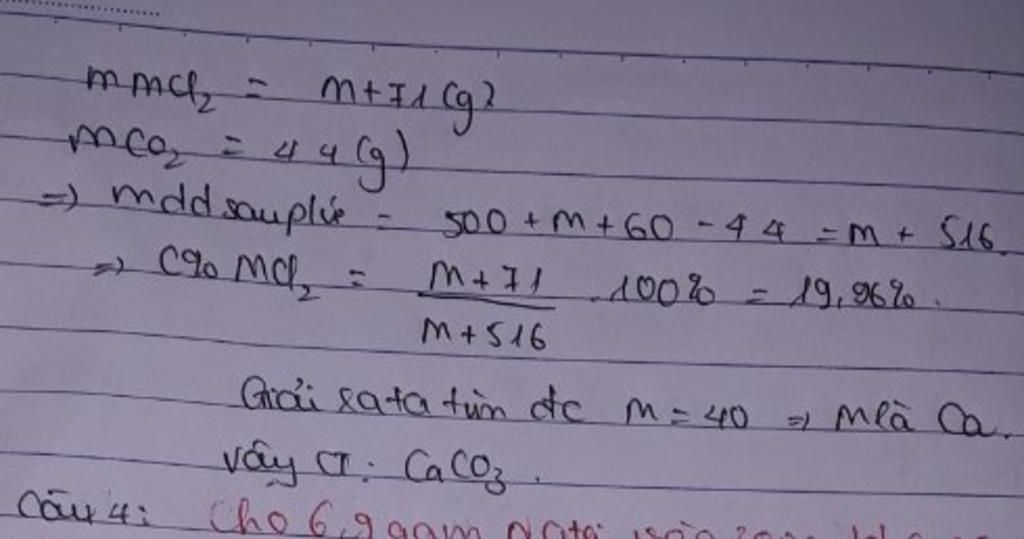 mMCl₂ = M+71(g)
mCO₂ = 44(g)
=) mdd sau pứ = 500 + M + 60 - 44 = M + 516
=) C% MCl₂ = M+71 / M+516 . 100% = 19,96%.
Giải ra ta tìm đc M = 40 =) M là Ca.
Vậy CT: CaCO₃.
Câu 4: Cho 6,9 gam Na